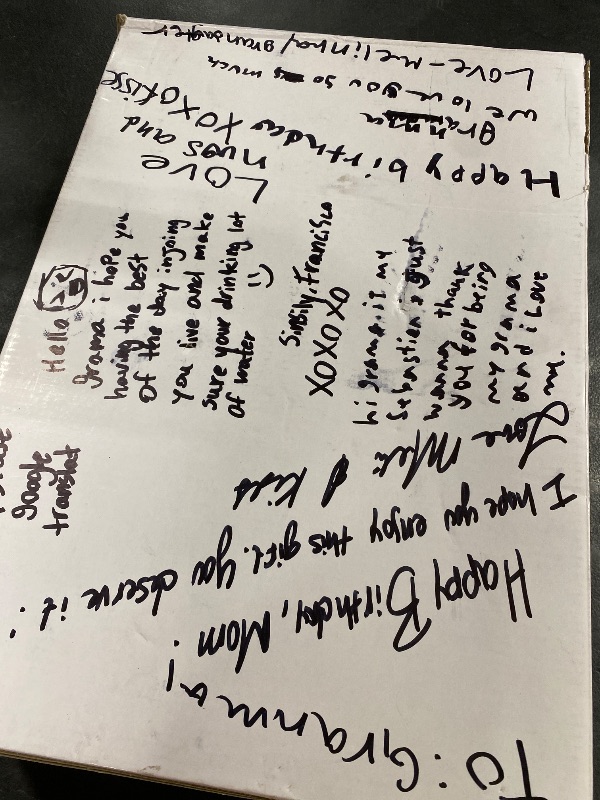 TO: Granma!
Happy Birthday, Mom.
I hope you enjoy this gift. You deserve it.
Love Meli & Kids
Hello
grama i hope you
having the best
of the day injoying
you live and make
sure your drinking lot
of water
Sinsily, Francisco
XOXOXO
hi grama it my
Sebastien i gust
wanna thank
you for being
my grama
and i love
google
translat
LOVE
hugs and
Happy birthday XOXO kisse
granma
we love you so much
LOVE - melinna/grandaughter